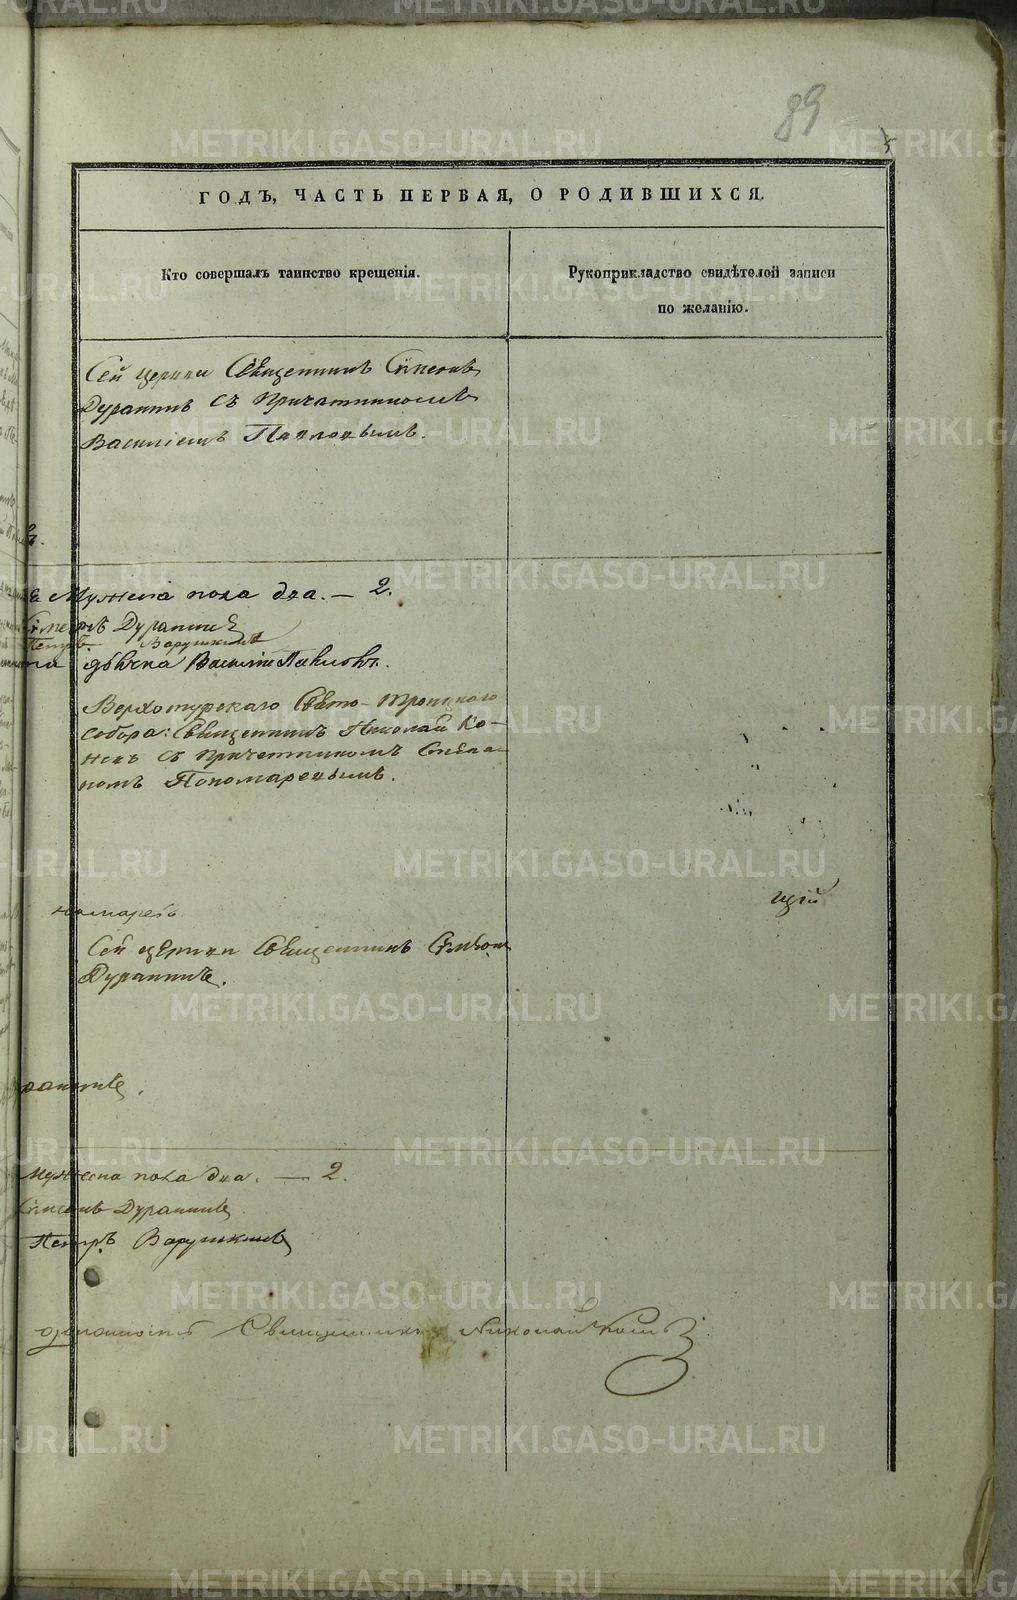 89
ГОДЪ, ЧАСТЬ ПЕРВАЯ, О РОДИВШИХСЯ.
Кто совершалъ таинство крещенія.
Рукоприкладство свидѣтелей записи
по желанію.
Сей церкви Священникъ Сѵмеонъ
Дуранинъ съ Причетникомъ
Василіемъ Павловымъ.
Мужеска пола два. — 2.
Сѵмеонъ Дуранинъ
Петръ Варушкинъ
дьячка Василій Павловъ.
Верхотурскаго Свято-Троицкаго
собора: Священникъ Николай Ко-
съ Причетникомъ Степа-
номъ Пономаревымъ.
номаревъ
щій
Сей церкви Священникъ Сѵмеонъ
Дуранинъ.
ранинъ.
Мужеска пола два. — 2.
Сѵмеонъ Дуранинъ
Петръ Варушкинъ
Священникъ Николай
METRIKI.GASO-URAL.RU